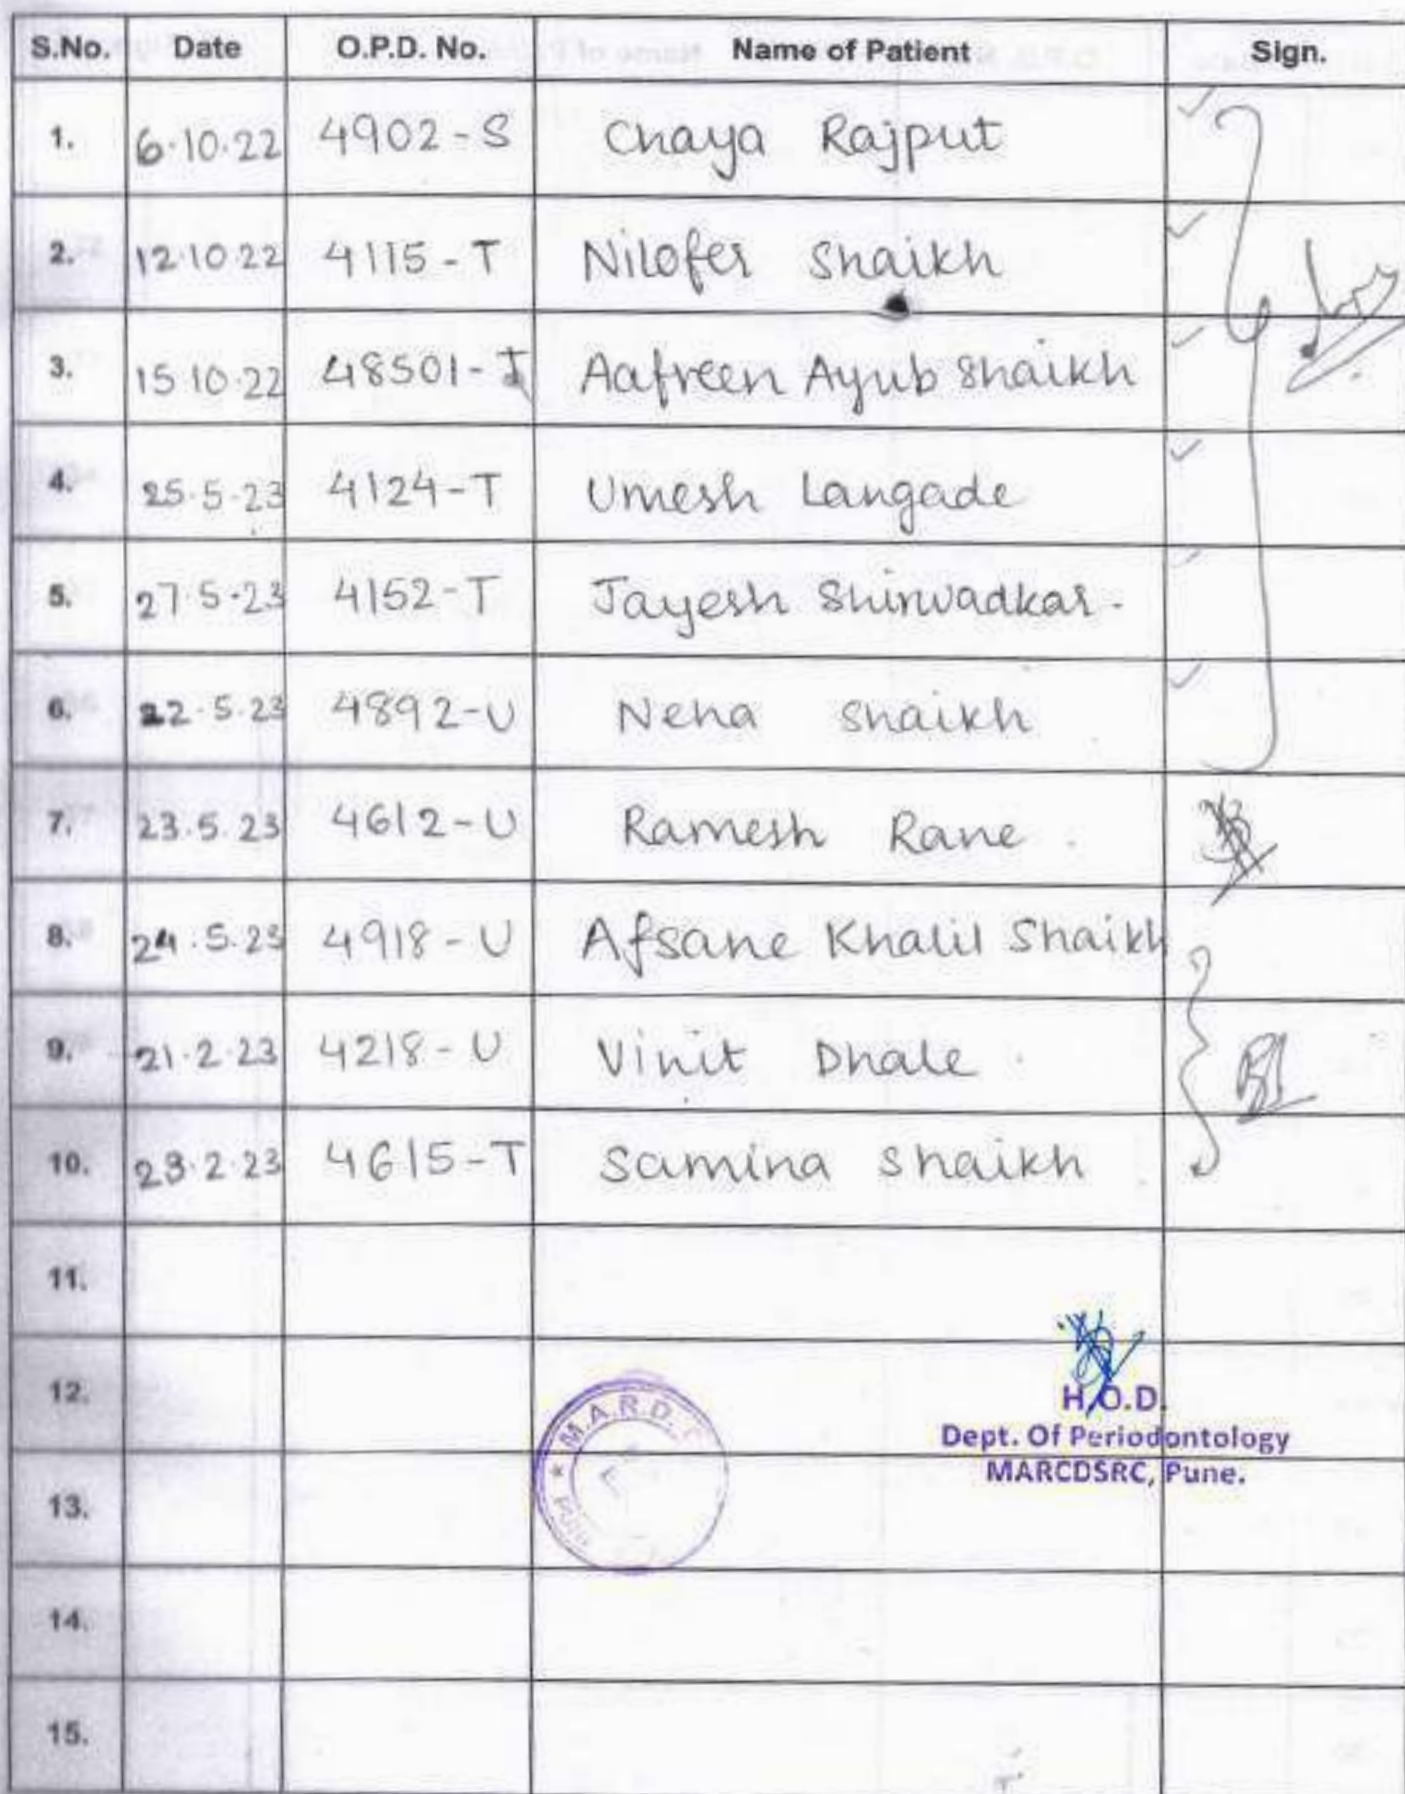 S.No. Date O.P.D. No. Name of Patient Sign.
1. 6.10.22 4902-S Chaya Rajput
2. 12.10.22 4115-T Nilofer Shaikh
3. 15.10.22 48501-T Aafreen Ayub Shaikh
4. 25.5.23 4124-T Umesh Langade
5. 27.5.23 4152-T Jayesh Shirwadkar.
6. 22.5.23 4892-U Neha Shaikh
7. 23.5.23 4612-U Ramesh Rane.
8. 24.5.23 4918-U Afsane Khalil Shaikh
9. 21.2.23 4218-U Vinit Dhale.
10. 23.2.23 4615-T Samina Shaikh
11.
12.
H.O.D.
M.A.R.D.
Dept. Of Periodontology
MARCDSRC, Pune.
13.
14.
15.